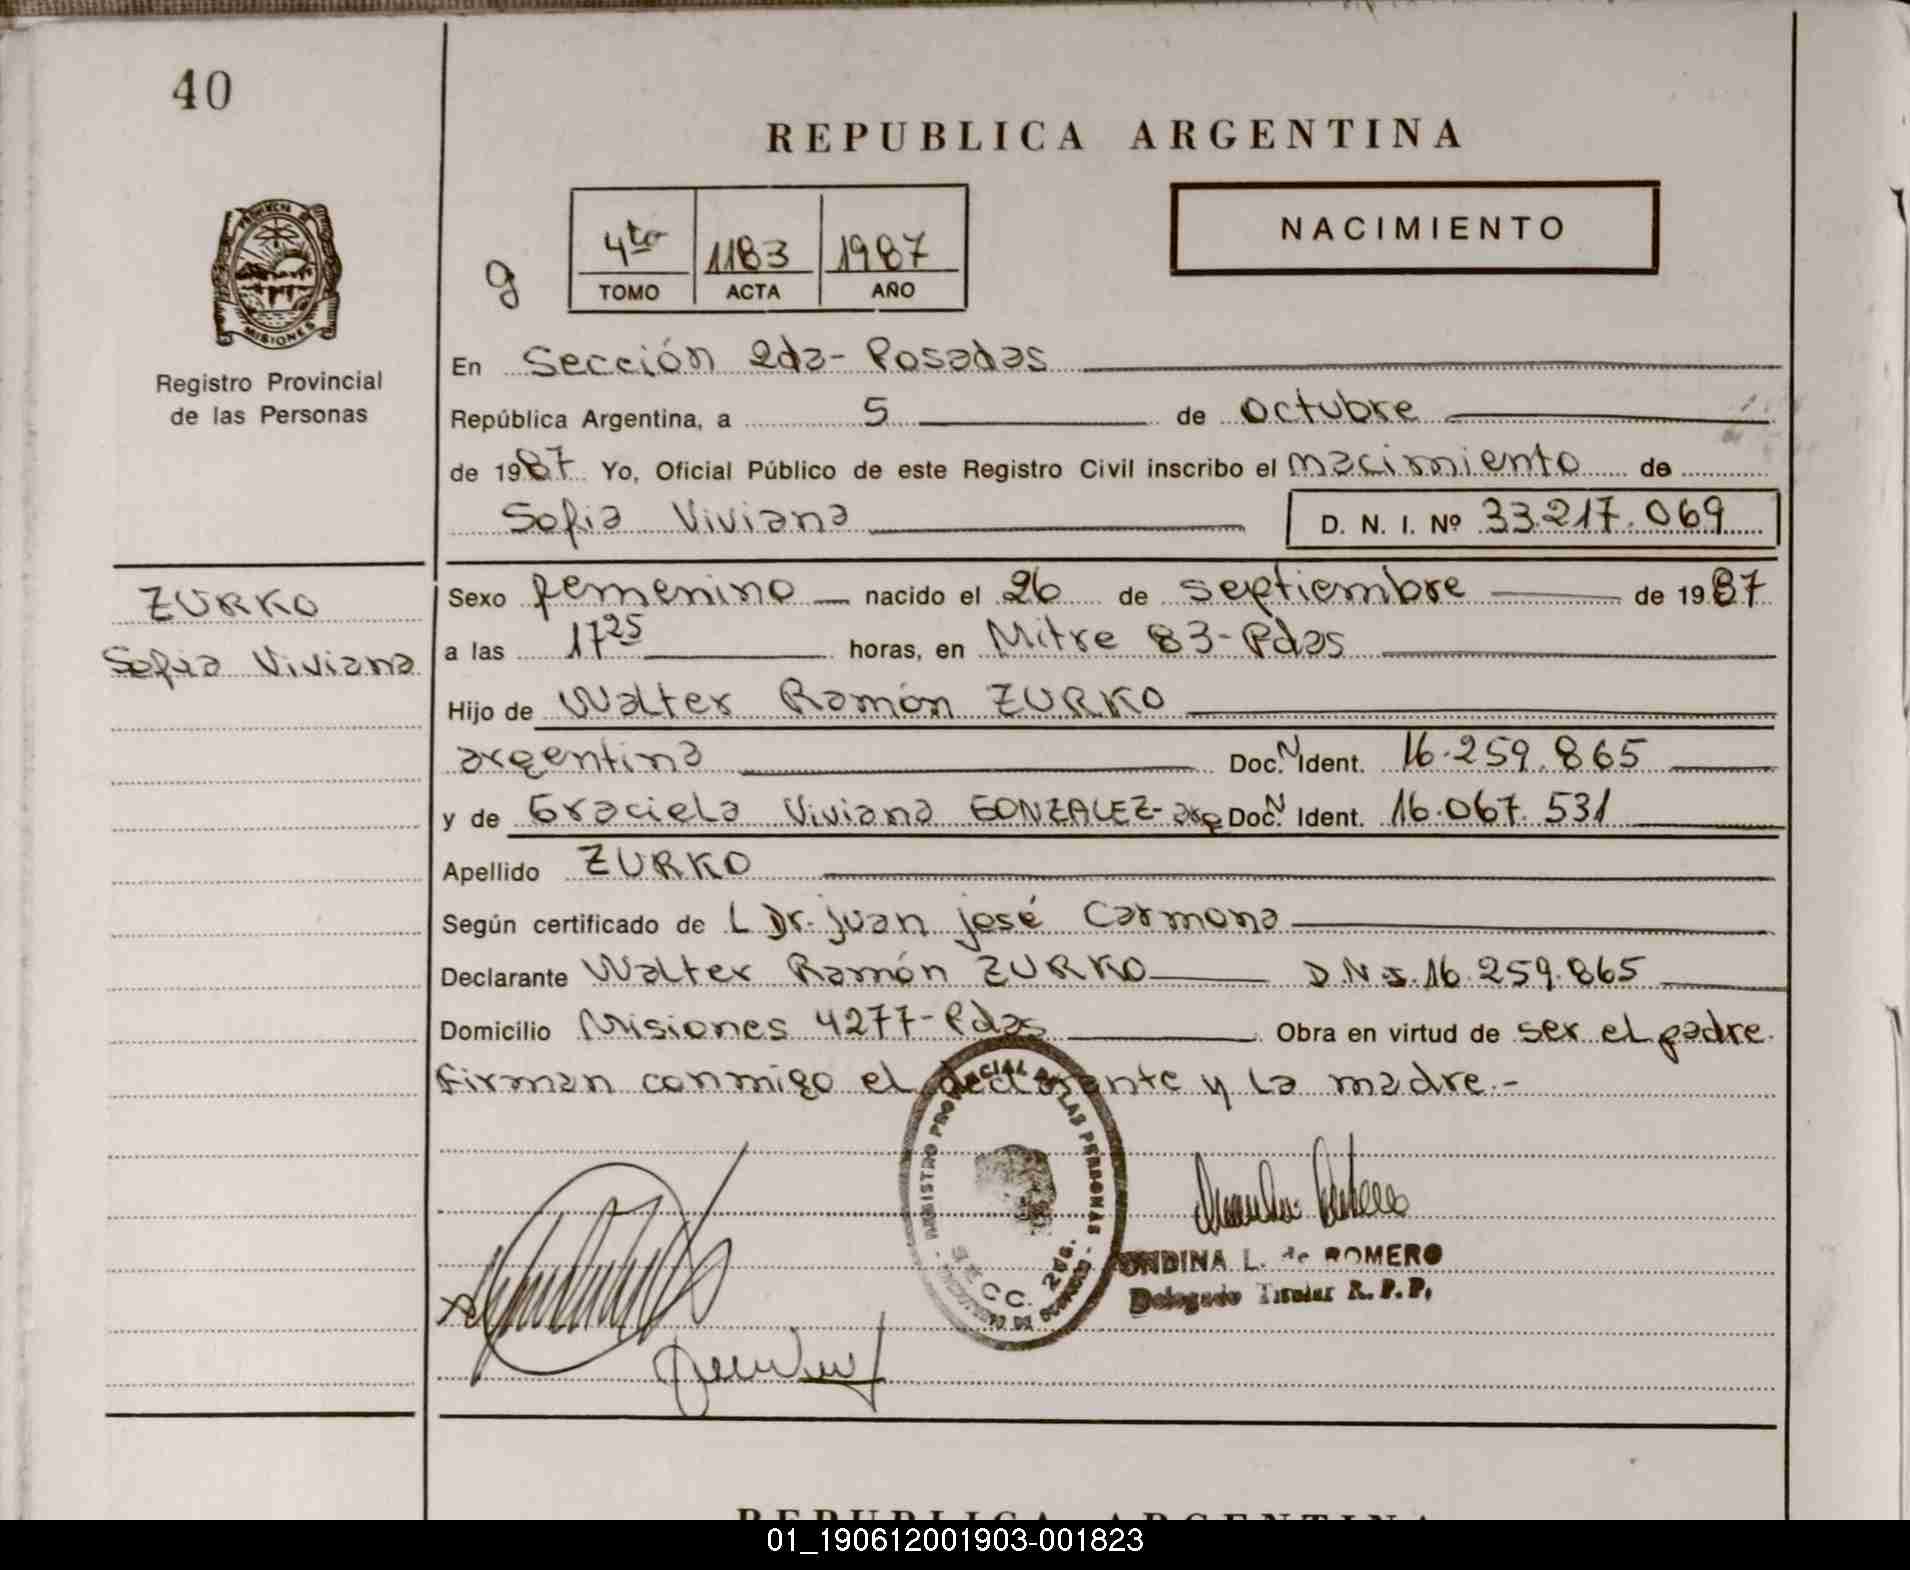 40
REPUBLICA ARGENTINA
NACIMIENTO
g
4to 1183 1987
TOMO ACTA AÑO
MISIONES
Registro Provincial
de las Personas
En Sección 2da - Posadas
República Argentina, a 5 de octubre
de 1987 Yo, Oficial Público de este Registro Civil inscribo el nacimiento de
Sofia Viviana D. N. I. Nº 33.217.069
ZURKO
Sofia Viviana
Sexo femenino nacido el 26 de septiembre de 1987
a las 17 25 horas, en Mitre 83 - Pdas
Hijo de Walter Ramón ZURKO
argentina Doc. N Ident. 16.259.865
y de Graciela Viviana GONZALEZ - arg Doc. N Ident. 16.067.531
Apellido ZURKO
Según certificado de L Dr. juan josé Carmona
Declarante Walter Ramón ZURKO D.N.I. 16.259.865
Domicilio Misiones 4277 - Pdas Obra en virtud de ser el padre.
firman conmigo el declarante y la madre.-
REGISTRO PROVINCIAL DE LAS PERSONAS
SECC. 2da.
ONDINA L. de ROMERO
Delegado Titular R. P. P.
REPUBLICA ARGENTINA
01_190612001903-001823